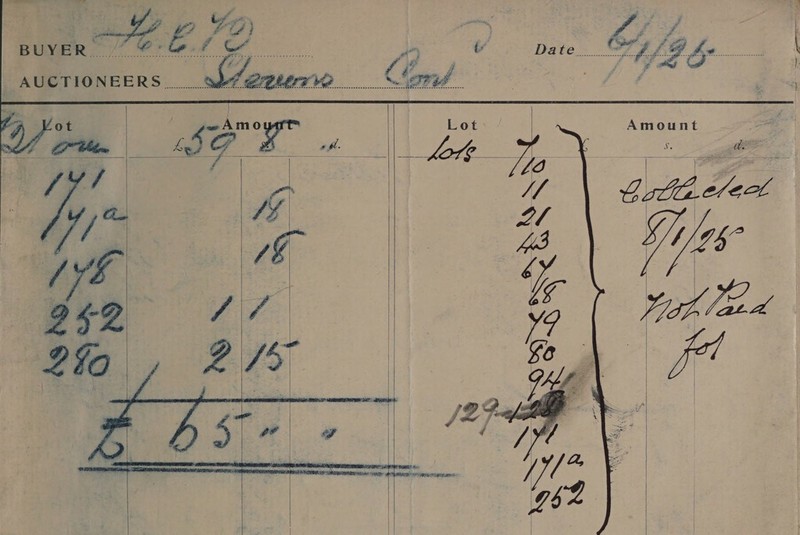 BUYER Date 6/1/25
AUCTIONEERS Stevens
Lot Amount
over £ 59 s. 8 d. ..
171
171a 18
178 18
252 1 1
280 2 15
£ 65 " "
Lot Amount
£ s. d.
Lots 7/10
11
21
43
67
68
79
80
94
129-128
171
171a
252
Collected
8/1/25
Not Paid
for